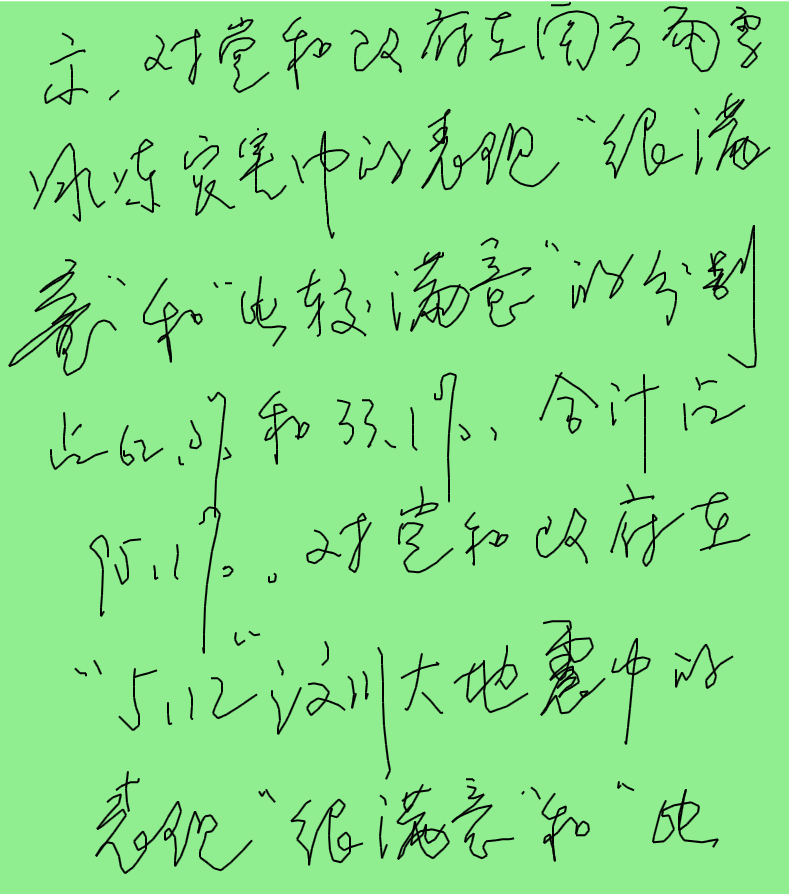 示,对党和政府在南方雨雪
冰冻灾害中的表现“很满
意”和“比较满意”的分别
占62.0%和33.1%,合计占
95.1%。对党和政府在
“5.12”汶川大地震中的
表现“很满意”和“比